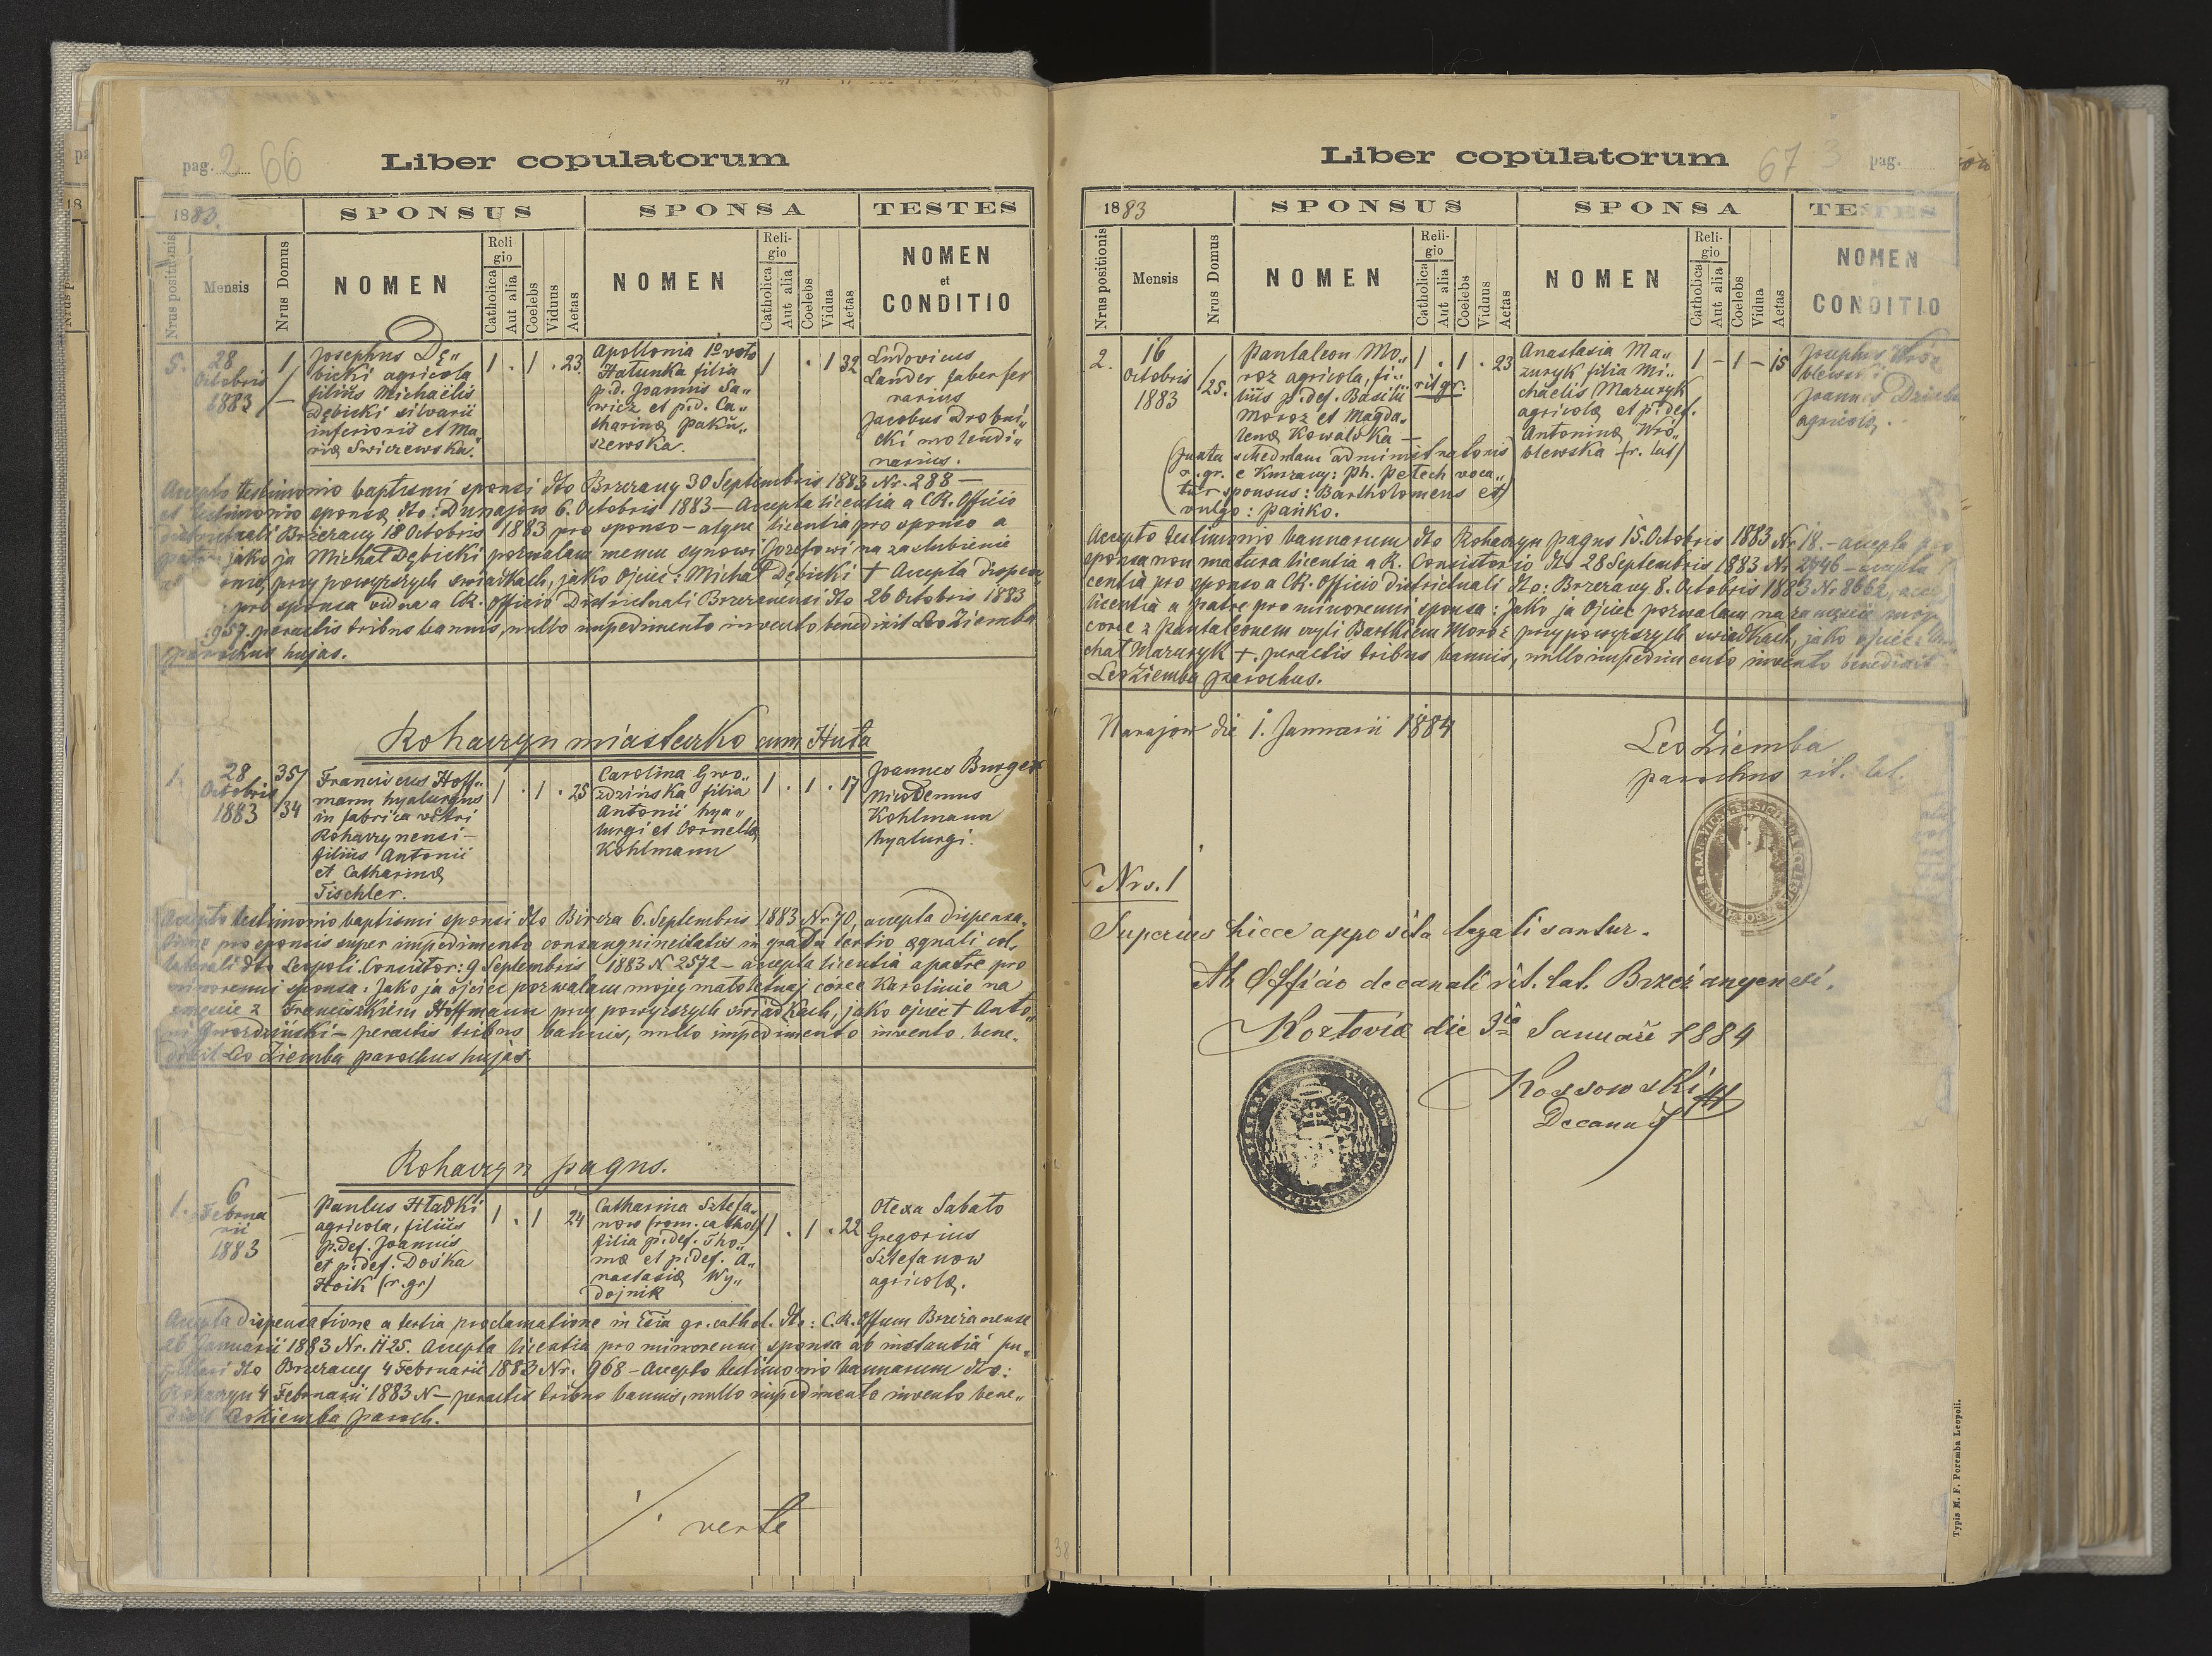 pag. 2 66
Liber copulatorum
1883.
SPONSUS
SPONSA
TESTES
Nrus positionis
Mensis
Nrus Domus
NOMEN
Religio
Catholica
Aut alia
Coelebs
Viduus
Aetas
NOMEN
Religio
Catholica
Aut alia
Coelebs
Vidua
Aetas
NOMEN
et
CONDITIO
5.
28
Octobris
1883
1
Josephus Dę„
bicki agricola
filius Michaëlis
Dębicki silvarii
inferioris et Ma„
riæ Swiczewska.
1 . 1 . 23
Apollonia 1º voto
Hałunka filia
p.d. Joannis Sa„
wicz et p.d. Ca„
tharinæ Paku„
szewska.
1 . 1 32
Ludovicus
Lander faber fer
rarius
Jacobus Drobni„
cki molendi„
narius.
Accepto testimonio baptismi sponsi dto Brzezany 30 Septembris 1883 Nr. 288 —
et testimonio sponsæ dto: Dunajow 6. Octobris 1883 — Accepta licentia a CR. Officio
Districtuali Brzezany 18 Octobris 1883 pro sponso — atque licentia pro sponso a
patre: jako ja Michał Dębicki pozwalam memu synowi Józefowi na zaślubienie
przy powyższych swiadkach, jako Ojciec: Michał Dębicki † Accepta dispen
pro sponsa vidua a CR. Officio Districtuali Brzezanensi dto 26 Octobris 1883
957. peractis tribus bannis, nullo impedimento invento benedixit Leo Ziemba
parochus hujas.
Rohaczyn miasteczko cum Huta
1.
28
Octobris
1883
35/
34
Franciscus Hoff„
mann hyalurgus
in fabrica vitri
Rohaczynensi —
filius Antonii
et Catharinæ
Tischler.
1 . 1 . 25
Carolina Gwo„
zdzińska filia
Antonii hya„
lurgi et Corneliæ
Kohlmann
1 . 1 . 17
Joannes Burger
Nicodemus
Kohlmann
hyalurgi.
Accepto testimonio baptismi sponsi dto Bircza 6. Septembris 1883 Nr 70, accepta dispensa„
tione pro sponsis super impedimento consanguineitatis in gradu tertio æquali col„
laterali dto Leopoli. Consistor: 9 Septembris 1883 N 2572 — accepta licentia a patre pro
minorenni sponsa: Jako ja ojciec pozwalam mojej małoletniej córce Karolinie na
z Franciszkiem Hoffmann przy powyższych swiadkach, jako ojciec † Anto„
ni Gwozdziński — peractis tribus bannis, nullo impedimento invento, bene„
dixit Leo Ziemba parochus hujas.
Rohaczyn pagus.
1.
6
Februa
rii
1883
Paulus Hładki
agricola, filius
p.def. Joannis
et p.def. Doska
Hoik (r.gr)
1 . 1 24
Catharina Sztefa„
now (rom. cathol)
filia p.def. Tho„
mæ et p.def. A„
nastasiæ Wy„
dojnik
1 . 1 . 22
Olexa Sabato
Gregorius
Sztefanow
agricolæ.
Accepta Dispensatione a tertia proclamatione in Ecia gr. cathol. dto: C.R. Offum Brzezanense
26 Januarii 1883 Nr. 1125. Accepta licentia pro minorenni sponsa ab instantia pu„
pillari dto Brzezany 4 Februarii 1883 Nr. 968 — Accepto testimonio bannorum dto:
Rohaczyn 4 Februarii 1883 N — peractis tribus bannis, nullo impedimento invento bene„
dixit Leo Ziemba paroch.
./. verte
Liber copulatorum
67 3 pag.
1883
SPONSUS
SPONSA
TESTES
Nrus positionis
Mensis
Nrus Domus
NOMEN
Religio
Catholica
Aut alia
Coelebs
Viduus
Aetas
NOMEN
Religio
Catholica
Aut alia
Coelebs
Vidua
Aetas
NOMEN
et
CONDITIO
2.
16
Octobris
1883
/25.
Pantaleon Mo„
roz agricola, fi„
lius p.def. Basilii
Moroz et Magda„
lenæ Kowalska —
1 . 1 . 23
rit gr.
(juxta schedulam administratoris
r.gr. e Kurzany: Ph. Petech voca„
tur sponsus: Bartholomeus et
vulgo: Pańko.
Anastasia Ma„
zuryk filia Mi„
chaëlis Mazuryk
agricolæ et p.def.
Antoninæ Wró„
blewska (r. lat)
1 – 1 – 15
Josephus Wró„
blewski
Joannes
agricolæ.
Accepto testimonio bannorum dto Rohaczyn pagus 15. Octobris 1883 Nr 18. — accepta pro
sponsa non matura licentia a R. Consistorio dto 28 Septembris 1883 Nr. 2746 — accepta li
centia pro sponso a CR. Officio Districtuali dto: Brzezany 8. Octobris 1883 Nr 8662, acce
licentia a patre pro minorenni sponsa: Jako ja Ojciec pozwalam na zamęście mojej
córce z Pantaleonem czyli Bartkiem Moroz przy powyższych swiadkach, jako ojciec: Mi
chał Mazuryk †. peractis tribus bannis, nullo impedimento invento benedixit
Leo Ziemba parochus.
Narajow die 1. Januarii 1884
Leo Ziemba
parochus rit. lat.
Nro. 1
Superius hicce apposita legalisantur.
Ab Officio decanali rit. lat. Brzeżanyensi.
Kozłoviæ die 3ia Januarii 1884
Kossowski
Decanus
38
Typis M. F. Poremba Leopoli.